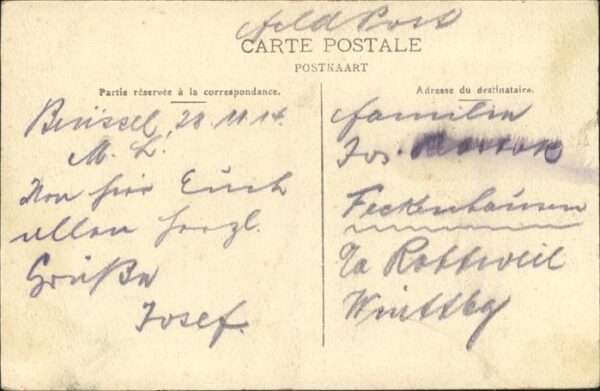 Feldpost
CARTE POSTALE
POSTKAART
Partie réservée à la correspondance.
Brüssel, 28.11.14.
M. L.
Von hier Euch
allen herzl.
Grüße
Josef.
Adresse du destinataire.
Familie
Jos.
Feckenhausen
Rottweil
Württbg